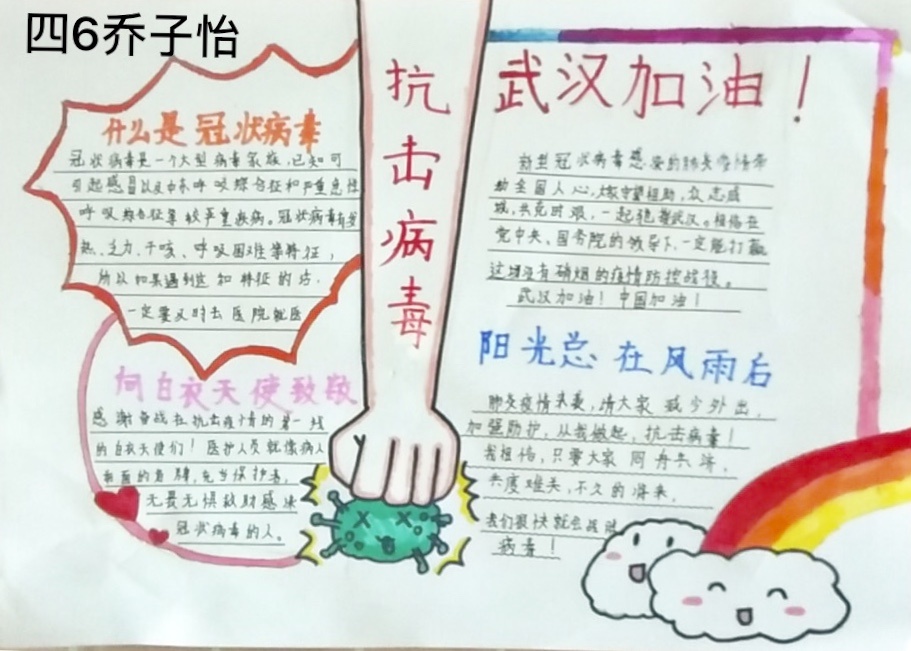 四6乔子怡
什么是冠状病毒
冠状病毒是一个大型病毒家族,已知可
引起感冒以及中东呼吸综合征和严重急性
呼吸综合征等较严重疾病。冠状病毒有发
热、乏力、干咳、呼吸困难等特征,
所以如果遇到这和特征的话,
一定要及时去医院就医
向白衣天使致敬
感谢奋战在抗击疫情的第一线
的白衣天使们!医护人员就像病人
面的盾牌,充当保护者,
无畏无惧救助感染
冠状病毒的人。
抗击病毒
武汉加油!
新型冠状病毒感染的肺炎疫情牵
动全国人心,大家守望相助,众志成
城,共克时艰,一起驰援武汉。相信在
党中央、国务院的领导下,一定能打赢
这场没有硝烟的疫情防控战役。
武汉加油!中国加油!
阳光总在风雨后
肺炎疫情来袭,请大家减少外出,
加强防护,从我做起,抗击病毒!
我相信,只要大家同舟共济,
共度难关,不久的将来,
我们很快就会战胜
病毒!